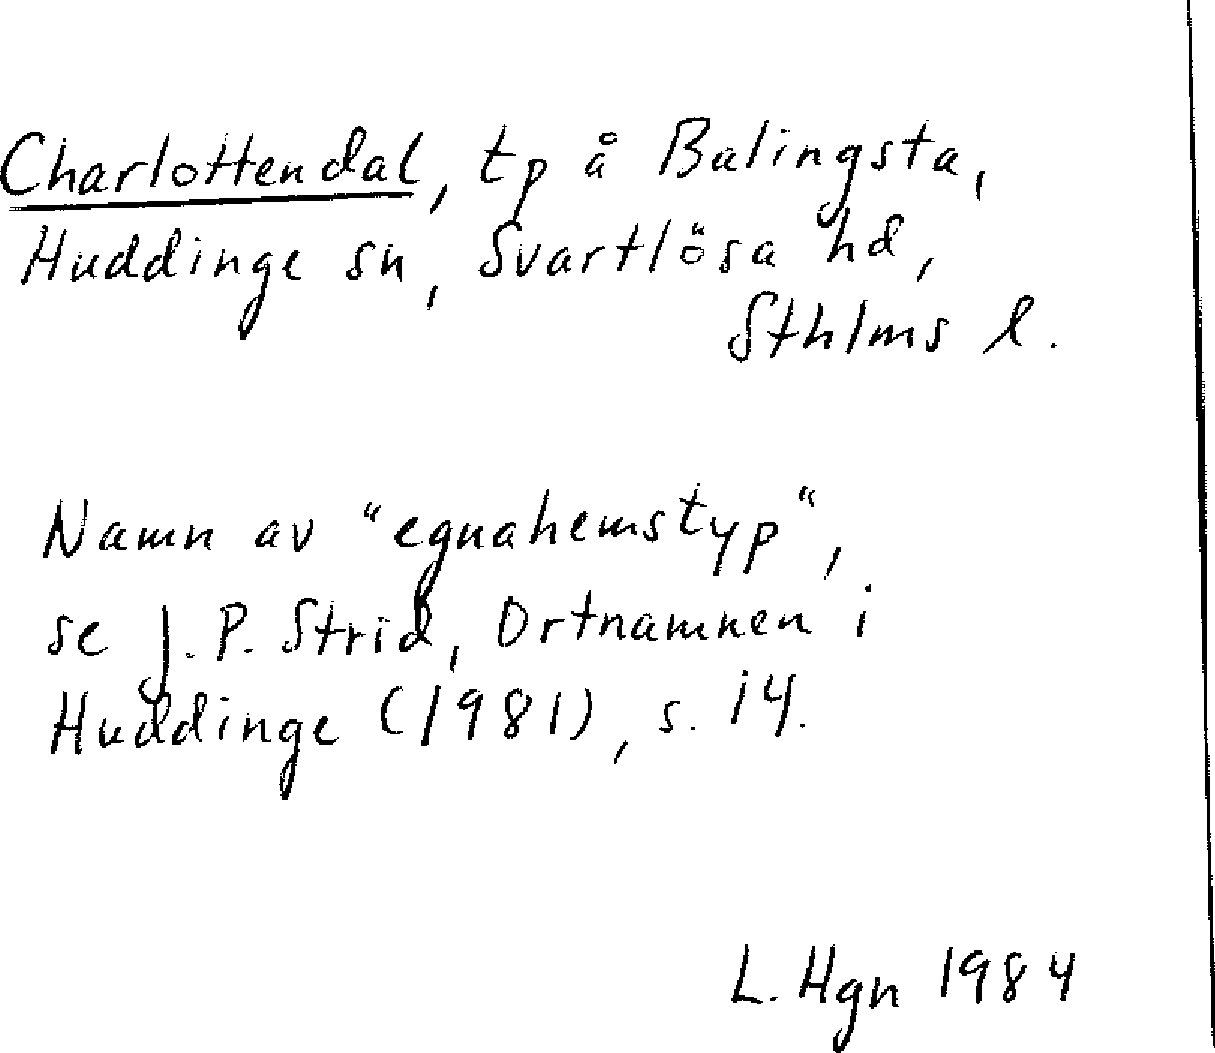 Charlottendal, tp å Balingsta,
Huddinge sn, Svartlösa hd,
Sthlms l.
Namn av "egnahemstyp",
se J. P. Strid, Ortnamnen i
Huddinge (1981), s. 14.
L. Hgn 1984